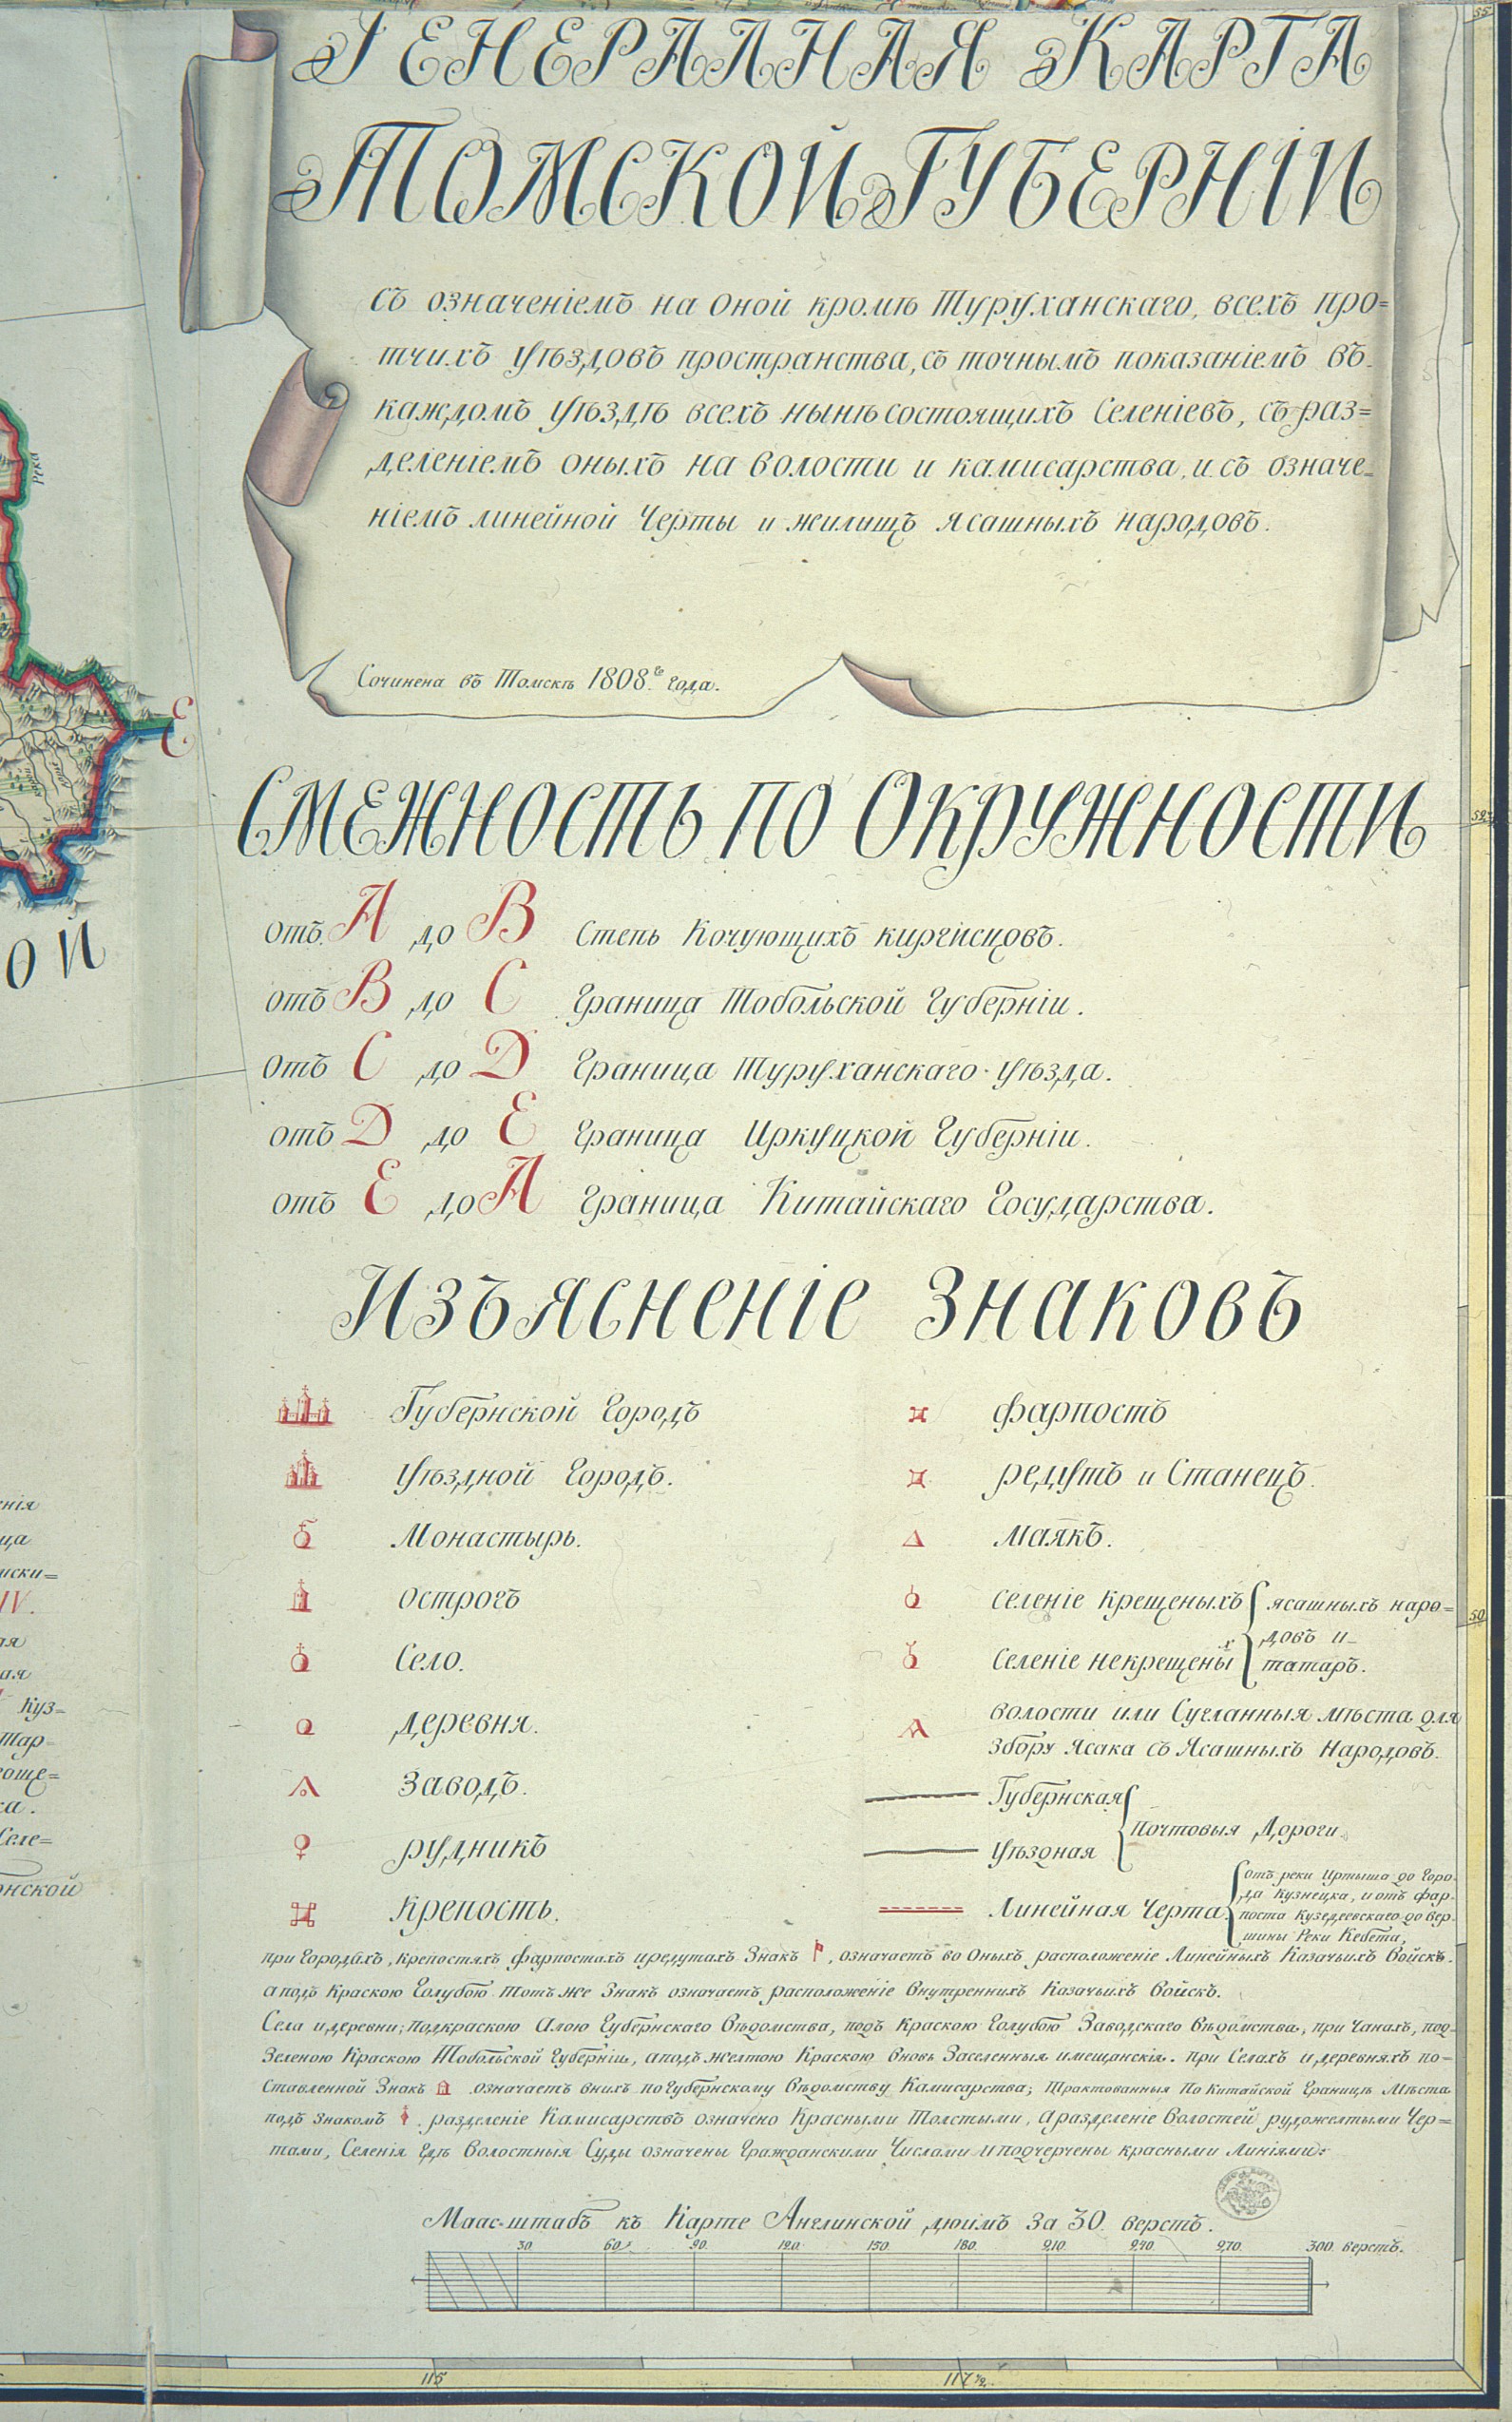 ГЕНЕРАЛНАЯ КАРТА
ТОМСКОЙ ГУБЕРНІИ
съ означеніемъ на оной кромѣ Туруханскаго, всехъ про=
тчихъ уѣздовъ пространства, съ точнымъ показаніемъ въ
каждомъ уѣздѣ всехъ нынѣ состоящихъ Селеніевъ, съ раз=
деленіемъ оныхъ на волости и камисарства, и съ означе=
ніемъ линейной Черты и жилищъ ясашныхъ народовъ.
Сочинена въ Томскѣ 1808.го года.
Река
Е
ОЙ
СМЕЖНОСТЬ ПО ОКРУЖНОСТИ
отъ A до B Степь Кочующихъ киргисцовъ.
отъ B до C Граница Тобольской Губерніи.
отъ C до D Граница Туруханскаго уѣзда.
отъ D до E Граница Иркуцкой Губерніи.
отъ E до A Граница Китайскаго Государства.
Изъясненіе Знаковъ
Губернской Городъ
Уѣздной Городъ.
Монастырь.
Острогъ
Село.
Деревня.
Заводъ.
рудникъ
Крепость.
фарпостъ
редутъ и Станецъ.
Маякъ.
Селеніе крещеныхъ ясашныхъ наро=
довъ и
Селеніе некрещеных татаръ.
волости или Сугланныя мѣста для
збору Ясака съ Ясашныхъ Народовъ.
Губернская
Почтовыя Дороги.
Уѣздная
Линейная Черта
отъ реки Иртыша до Горо=
да Кузнецка, и отъ фар=
поста Кузедеевскаго до вер=
шины Реки Кебета,
при Городахъ, крепостяхъ фарпостахъ и редутахъ Знакъ , означаетъ во Оныхъ расположеніе Линейныхъ Казачьихъ Войскъ.
а подъ Краскою Голубою тотъ же Знакъ означаетъ расположеніе Внутреннихъ Казачьихъ Войскъ.
Села и деревни; под краскою Алою Губернскаго Вѣдомства, подъ Краскою Голубою Заводскаго Вѣдомства, при Чанахъ, под=
Зеленою Краскою Тобольской Губерніи, а подъ желтою Краскою вновь Заселенныя и мещанскія. при Селахъ и деревняхъ по=
ставленной Знакъ означаетъ в нихъ по Губернскому Вѣдомству Камисарства; Трактованныя По Китайской Границѣ Мѣста
подъ знакомъ . разделеніе Камисарствъ означено Красными Толстыми, а разделеніе Волостей рудожелтыми Чер=
тами, Селенія гдѣ Волостныя Суды означены Гражданскими Числами и подчерчены красными Линіями.
Маасштабъ къ Карте Англинской дюимъ за 30 верстъ.
30. 60. 90. 120. 150. 180. 210. 240. 270. 300 верстъ.
115 117½.
52
50
нія
ца
мски=
IV.
ая
ая
Куз=
Тар=
още=
ка.
Селе=
нской